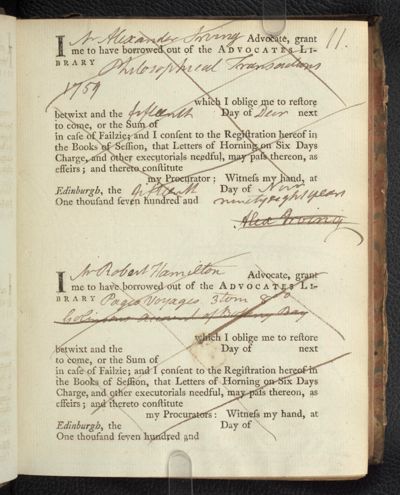 11.
I Mr Alexander Irving Advocate, grant
me to have borrowed out of the ADVOCATES LI-
BRARY Philosophical Transactions
1759
which I oblige me to reſtore
betwixt and the fifteenth Day of Decr next
to come, or the Sum of
in caſe of Failzie; and I conſent to the Regiſtration hereof in
the Books of Seſſion, that Letters of Horning on Six Days
Charge, and other executorials needful, may paſs thereon, as
effeirs; and thereto conſtitute
my Procurator: Witneſs my hand, at
Edinburgh, the fifteenth Day of Novr
One thouſand ſeven hundred and ninety eight years
Alex Irving
I Mr Robert Hamilton Advocate, grant
me to have borrowed out of the ADVOCATES LI-
BRARY Pages Voyages 3 tom 8vo
Account of Botany Bay
which I oblige me to reſtore
betwixt and the Day of next
to come, or the Sum of
in caſe of Failzie; and I conſent to the Regiſtration hereof in
the Books of Seſſion, that Letters of Horning on Six Days
Charge, and other executorials needful, may paſs thereon, as
effeirs; and thereto conſtitute
my Procurators: Witneſs my hand, at
Edinburgh, the Day of
One thouſand ſeven hundred and